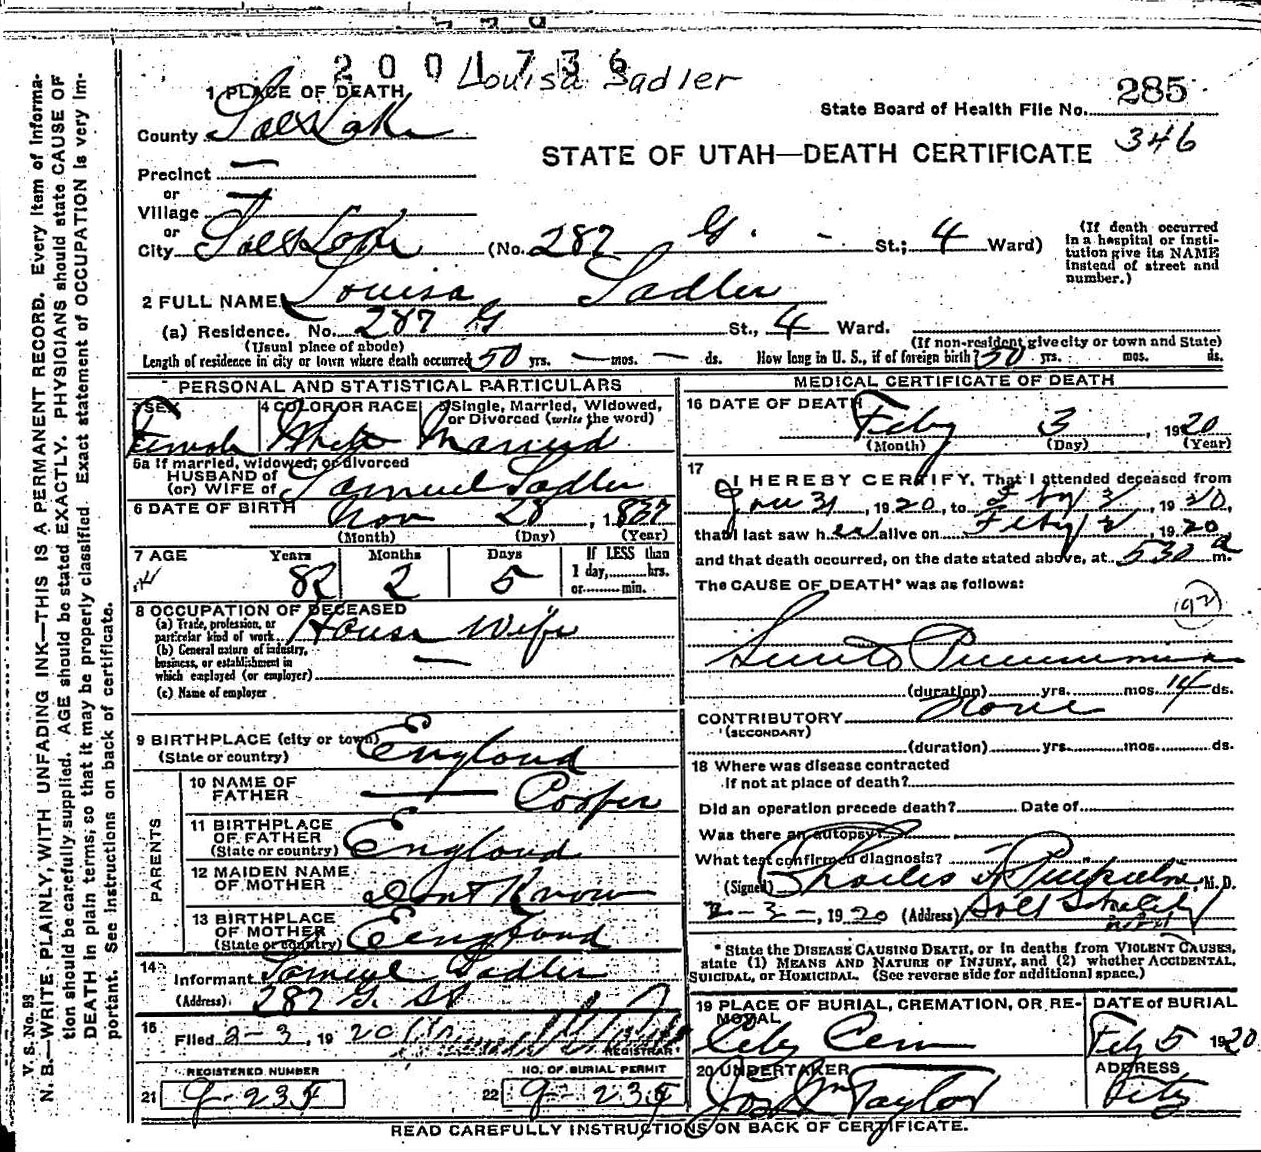 2001736 Louisa Sadler
1 PLACE OF DEATH
State Board of Health File No. 285
346
County Salt Lake
STATE OF UTAH—DEATH CERTIFICATE
Precinct —
or
Village —
or
City Salt Lake (No. 287 G. - St.; 4 Ward)
(If death occurred in a hospital or institution give its NAME instead of street and number.)
2 FULL NAME Louisa Sadler
(a) Residence. No. 287 G St., 4 Ward.
(Usual place of abode) (If non-resident give city or town and State)
Length of residence in city or town where death occurred 50 yrs. — mos. — ds. How long in U. S., if of foreign birth? 50 yrs. mos. ds.
PERSONAL AND STATISTICAL PARTICULARS
3 SEX 4 COLOR OR RACE 5 Single, Married, Widowed, or Divorced (write the word)
Female White Married
5a If married, widowed, or divorced
HUSBAND of
(or) WIFE of Samuel Sadler
6 DATE OF BIRTH Nov 28, 1837
(Month) (Day) (Year)
7 AGE Years Months Days If LESS than
82 2 5 1 day, hrs.
or min.
8 OCCUPATION OF DECEASED
(a) Trade, profession, or
particular kind of work House Wife
(b) General nature of industry,
business, or establishment in —
which employed (or employer)
(c) Name of employer
9 BIRTHPLACE (city or town)
(State or country) England
PARENTS
10 NAME OF
FATHER — Cooper
11 BIRTHPLACE
OF FATHER
(State or country) England
12 MAIDEN NAME
OF MOTHER Dont Know
13 BIRTHPLACE
OF MOTHER
(State or country) England
14 Informant Samuel Sadler
(Address) 287 G. St
15 Filed 2-3, 1920
REGISTRAR
REGISTERED NUMBER NO. OF BURIAL PERMIT
21 9-234 22 9-234
MEDICAL CERTIFICATE OF DEATH
16 DATE OF DEATH
Feby 3, 1920
(Month) (Day) (Year)
17 I HEREBY CERTIFY, That I attended deceased from
Jan 31, 1920, to Feby 3, 1920,
that I last saw her alive on Feby 2 1920
and that death occurred, on the date stated above, at 530 a m.
The CAUSE OF DEATH* was as follows:
(92)
Pneumonia
(duration) yrs. mos. 14 ds.
CONTRIBUTORY None
(SECONDARY)
(duration) yrs. mos. ds.
18 Where was disease contracted
If not at place of death?
Did an operation precede death? Date of
Was there an autopsy?
What test confirmed diagnosis?
(Signed) Charles M. D.
2-3-, 1920 (Address)
* State the DISEASE CAUSING DEATH, or in deaths from VIOLENT CAUSES,
state (1) MEANS AND NATURE OF INJURY, and (2) whether ACCIDENTAL,
SUICIDAL, or HOMICIDAL. (See reverse side for additional space.)
19 PLACE OF BURIAL, CREMATION, OR REMOVAL DATE of BURIAL
City Cem Feby 5 1920
20 UNDERTAKER ADDRESS
Jos Wm Taylor City
READ CAREFULLY INSTRUCTIONS ON BACK OF CERTIFICATE.
V. S. No. 93
N. B.—WRITE PLAINLY, WITH UNFADING INK—THIS IS A PERMANENT RECORD. Every item of informa-
tion should be carefully supplied. AGE should be stated EXACTLY. PHYSICIANS should state CAUSE OF
DEATH in plain terms, so that it may be properly classified. Exact statement of OCCUPATION is very im-
portant. See instructions on back of certificate.